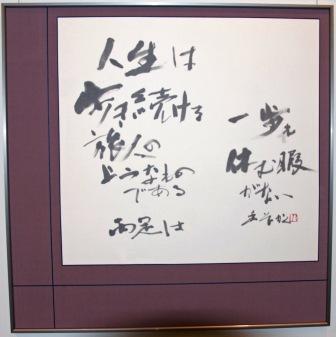 人生は
歩き続ける
旅人の
ようなもの
である
両足は
一歩も
休む暇
がない